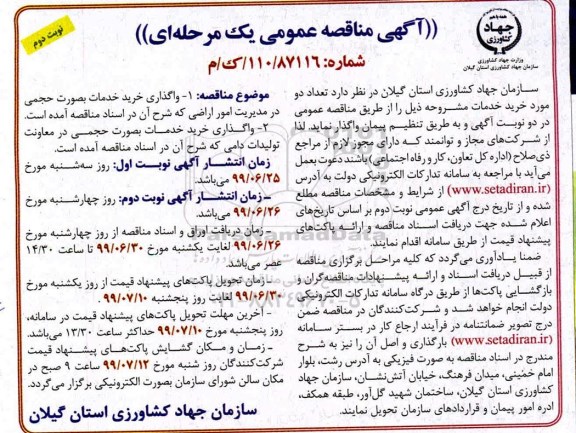 نوبت دوم
((آگهی مناقصه عمومی یک مرحله‌ای))
شماره: ۱۱۰/۸۷۱۱۶/ک/م
همه با هم
جهاد
کشاورزی
وزارت جهاد کشاورزی
سازمان جهاد کشاورزی استان گیلان
سازمان جهاد کشاورزی استان گیلان در نظر دارد تعداد دو
مورد خرید خدمات مشروحه ذیل را از طریق مناقصه عمومی
در دو نوبت آگهی و به طریق تنظیم پیمان واگذار نماید. لذا
از شرکت‌های مجاز و توانمند که دارای مجوز لازم از مراجع
ذی‌صلاح (اداره کل تعاون، کار و رفاه اجتماعی) باشند دعوت بعمل
می‌آید با مراجعه به سامانه تدارکات الکترونیکی دولت به آدرس
(www.setadiran.ir) از شرایط و مشخصات مناقصه مطلع
شده و از تاریخ درج آگهی عمومی نوبت دوم بر اساس تاریخ‌های
اعلام شده جهت دریافت اسناد مناقصه و ارائه پاکت‌های
پیشنهاد قیمت از طریق سامانه اقدام نمایند.
ضمنا یادآوری می‌گردد که کلیه مراحل برگزاری مناقصه
از قبیل دریافت اسناد و ارائه پیشنهادات مناقصه‌گران و
بازگشایی پاکت‌ها از طریق درگاه سامانه تدارکات الکترونیکی
دولت انجام خواهد شد و شرکت‌کنندگان در مناقصه ضمن
درج تصویر ضمانتنامه در فرآیند ارجاع کار در بستر سامانه
(www.setadiran.ir) بارگذاری و اصل آن را نیز به شرح
مندرج در اسناد مناقصه به صورت فیزیکی به آدرس رشت، بلوار
امام خمینی، میدان فرهنگ، خیابان آتش‌نشان، سازمان جهاد
کشاورزی استان گیلان، ساختمان شهید گل‌آور، طبقه همکف،
اداره امور پیمان و قراردادهای سازمان تحویل نمایند.
موضوع مناقصه: ۱- واگذاری خرید خدمات بصورت حجمی
در مدیریت امور اراضی که شرح آن در اسناد مناقصه آمده است.
۲- واگذاری خرید خدمات بصورت حجمی در معاونت
تولیدات دامی که شرح آن در اسناد مناقصه آمده است.
زمان انتشار آگهی نوبت اول: روز سه‌شنبه مورخ
۹۹/۰۶/۲۵ می‌باشد.
- زمان انتشار آگهی نوبت دوم: روز چهارشنبه مورخ
۹۹/۰۶/۲۶ می‌باشد.
- زمان دریافت اوراق و اسناد مناقصه از روز چهارشنبه مورخ
۹۹/۰۶/۲۶ لغایت یکشنبه مورخ ۹۹/۰۶/۳۰ تا ساعت ۱۴/۳۰
عصر می‌باشد.
- زمان تحویل پاکت‌های پیشنهاد قیمت از روز یکشنبه مورخ
۹۹/۰۶/۳۰ لغایت روز پنجشنبه ۹۹/۰۷/۱۰
- آخرین مهلت تحویل پاکت‌های پیشنهاد قیمت در سامانه،
روز پنجشنبه مورخ ۹۹/۰۷/۱۰ حداکثر ساعت ۱۳/۳۰ می‌باشد.
- زمان و مکان گشایش پاکت‌های پیشنهاد قیمت
شرکت‌کنندگان روز شنبه مورخ ۹۹/۰۷/۱۲ ساعت ۹ صبح در
مکان سالن شورای سازمان بصورت الکترونیکی برگزار می‌گردد.
سازمان جهاد کشاورزی استان گیلان